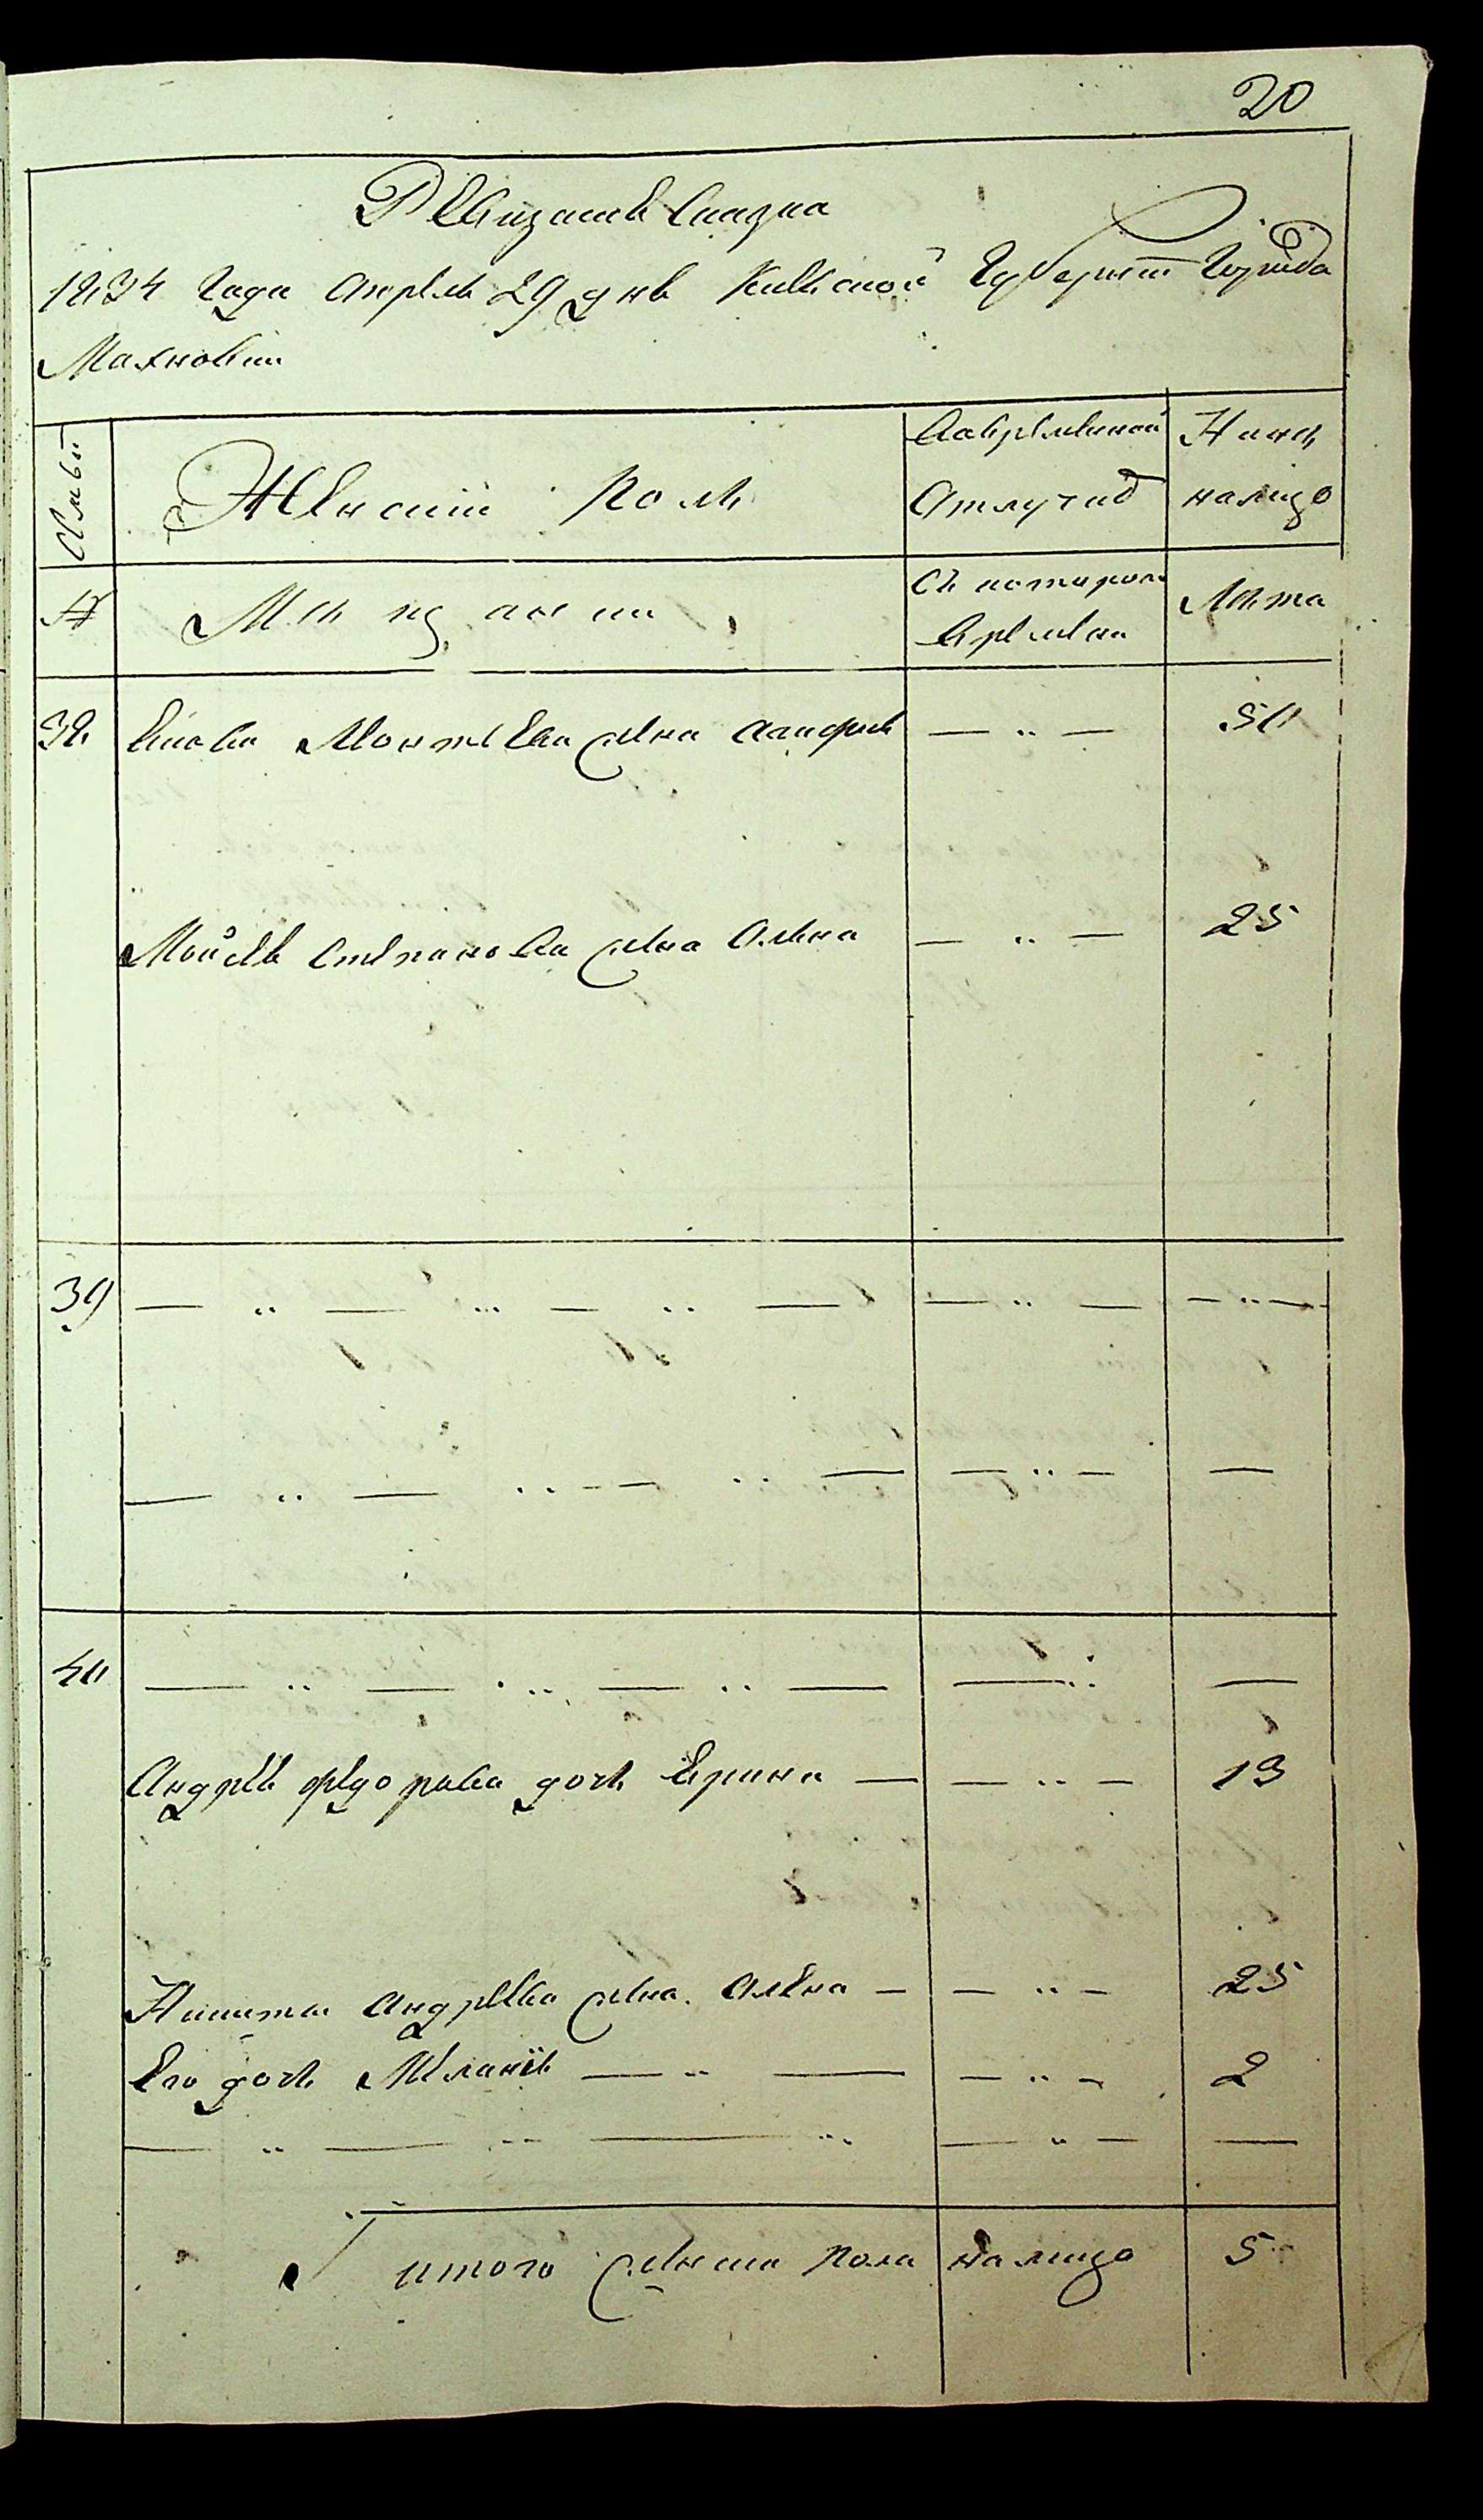 20
Ревизская Сказка
1834 Года Апреля 29 дня Киевской Губернии Города
Махновки
Семьи
Женский полъ
Вовременной
Отлучке
Ныне
налицо
№
Мещанки
Съ котораго
времени
Лета
38
Якова Мантеева жена Агафия
— „ —
50
Моисея Степанова жена Алена
— „ —
25
39
— „ — „ — „ —
— „ —
— „ —
— „ — „ — „ —
— „ —
—
40
— „ — „ — „ —
— „
—
Андрея Федорова дочь Ирина —
— „ —
13
Никиты Андреева жена Алена —
— „ —
25
Его дочь Мелания — „ —
— „ —
2
— „ — „ — „
— „ —
—
итого женска пола налицо 5